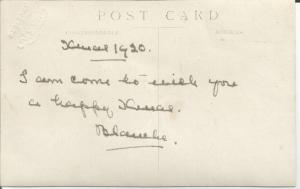 POST CARD
CORRESPONDENCE ADDRESS
Xmas 1920.
I am come to wish you
a happy Xmas.
Blanche.